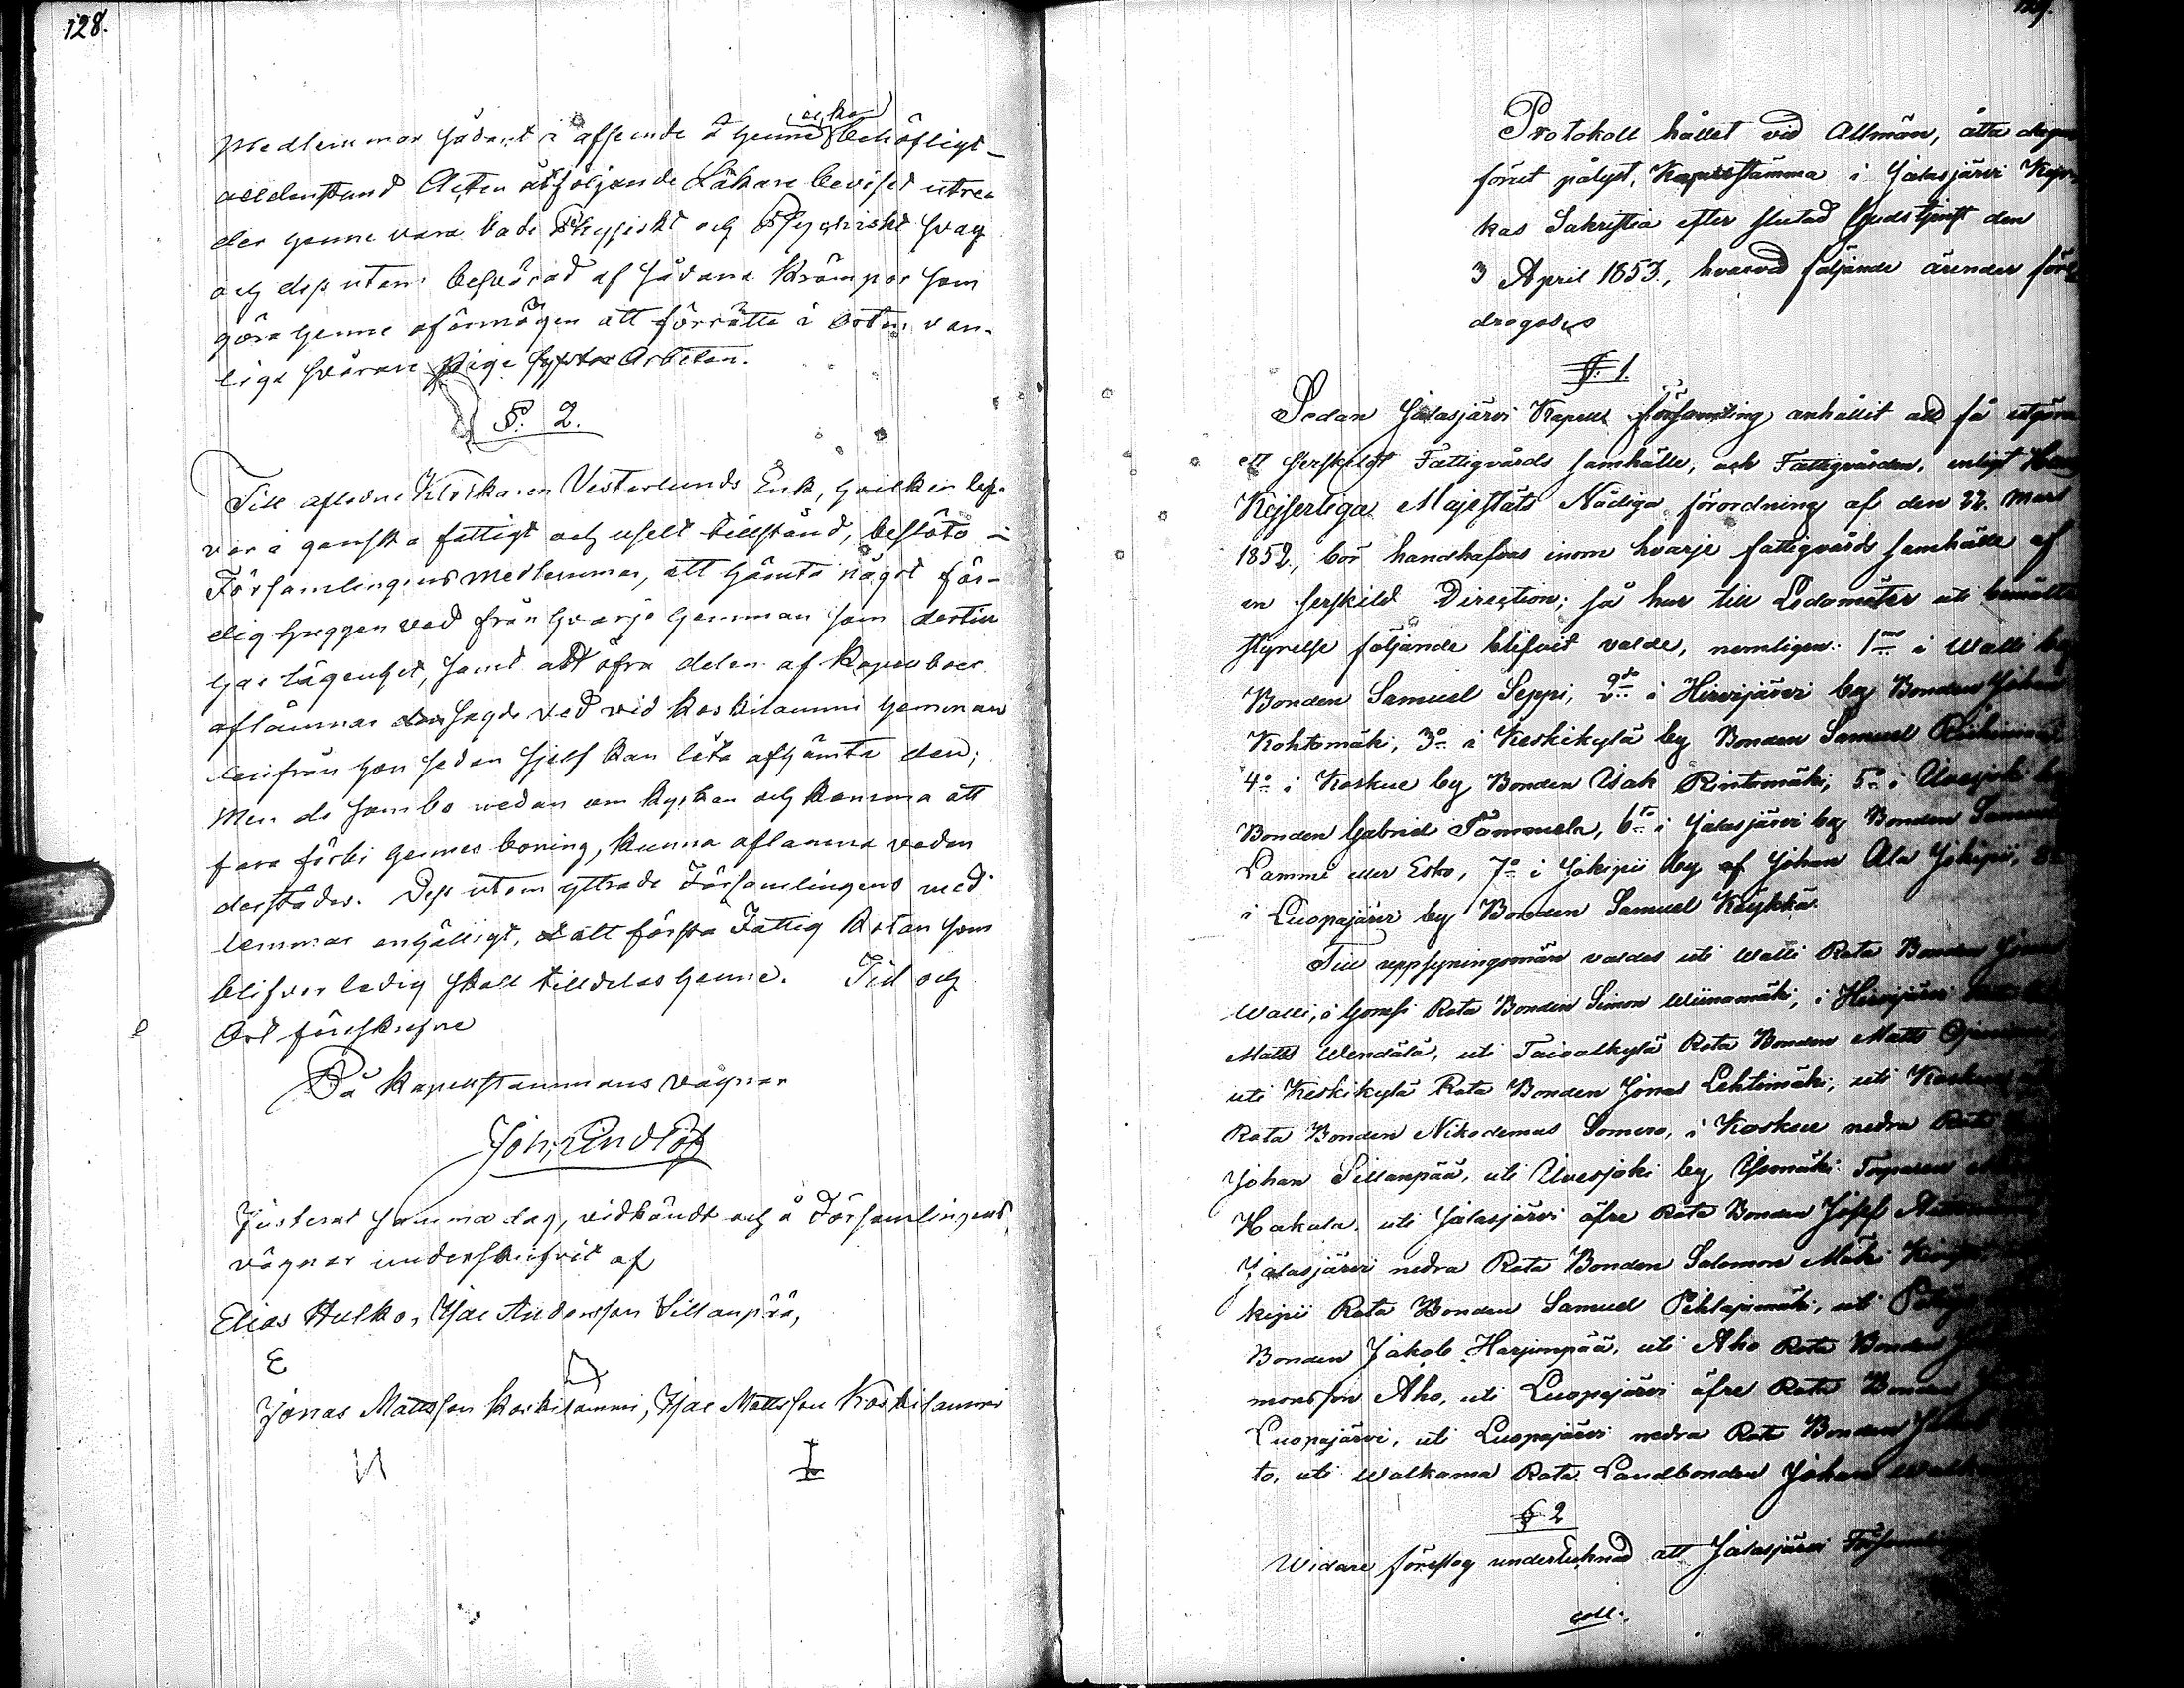 128.
icke
medlemmar sådant i afseende å henne behöfligt
alldenstund Acten åtföljande Läkare beviset utre-
der henne vara både Physiskt och Psychiskt svag
och dess utom besvärad af sådana krämpor som
göra henne oförmögen att förrätta i orten van-
liga svårare pige Arbeten.
§. 2.
Till aflidne Klockaren Vesterlunds Enka, hvilken lef-
ver i ganska fattigt och uselt tillstånd, beslöto
Församlingens medlemmar, att hämta något för-
dig huggen ved från hvarje hemman som dertill
har lägenhet, samt att öfra delen af kapell boer
aflämnar sagde ved vid Koskilammi hemman
hon sedan sjelf kan låta afhämta den;
Men de som bo nedan om kyrkan och komma att
fara förbi hennes boning, kunna aflämna veden
derstädes. Dess utom yttrade Församlingens med-
lemmar enhälligt, att första Fattig kotan som
blifver ledig skall tilldelas henne. Tid och
Ort förskrifne
På Kapellstämmans vägnar
Joh. Lindlöf
Justerat samma dag, vidkändt och å Församlingens
vägnar underskrifvit af
Elias Hulko, Isac Andersson Sillanpää,
Jonas Mattsson Koskilammi, Isac Mattsson Koskilammi
129.
Protokoll hållet vid Allmän, åtta dagar
förut pålyst, Kapellstämma i Jalasjärvi Kyr-
kas Sakristia efter slutad Gudstjenst den
3 April 1853., hvarvid följande ärender före-
drogades
§. 1.
Sedan Jalasjärvi Kapell församling anhållit att få utgöra
ett serskildt Fattigvårds samhälle, och Fattigvården, enligt Hans
Kejserliga Majestäts Nådiga förordning af den 22. Mars
1852., bör handhafvas inom hvarje fattigvårds samhälle af
en serskild Direction; så har till Ledamöter uti bemälta
styrelse följande blifvit valde, nemligen: 1mo i Walli by
Bonden Samuel Seppi, 2do i Hirvijärvi by Bonden Johan
Kohtomäki, 3o i Keskikylä by Bonden Samuel
4o i Koskue by Bonden Isak Rintomäki, 5o i Uvesjoki by
Bonden Gabriel Tommola, 6to i Jalasjärvi by Bonden Samuel
Lammi eller Esko, 7o i Jokipii by af Johan Ala Jokipii,
i Luopajärvi by Bonden Samuel Köykkä.
Till uppsyningsmän valdes uti Walli Rota Bonden
Walli, i Rota Bonden Simon Wiinamäki, i Hirvijärvi
Matts Wendälä, uti Taivalkylä Rota Bonden Matts
uti Keskikylä Rota Bonden Jonas Lehtimäki, uti Koskue
Rota Bonden Nikodemus Somero, i Koskue nedra Rota
Johan Sillanpää, uti Uvesjoki by Torparen
Hakala, uti Jalasjärvi öfre Rota Bonden Josef
Jalasjärvi nedra Rota Bonden Salomon Mäki
kipii Rota Bonden Samuel Pihlajamäki, uti
Bonden Jakob Harjunpää, uti Aho Rota Bonden
monsson Aho, uti Luopajärvi öfre Rota Bonden
Luopajärvi, uti Luopajärvi nedra Rota Bonden
to, uti Walkama Rota Landbonden Johan
§ 2
Widare föreslog undertecknad att Jalasjärvi Församling
coll.